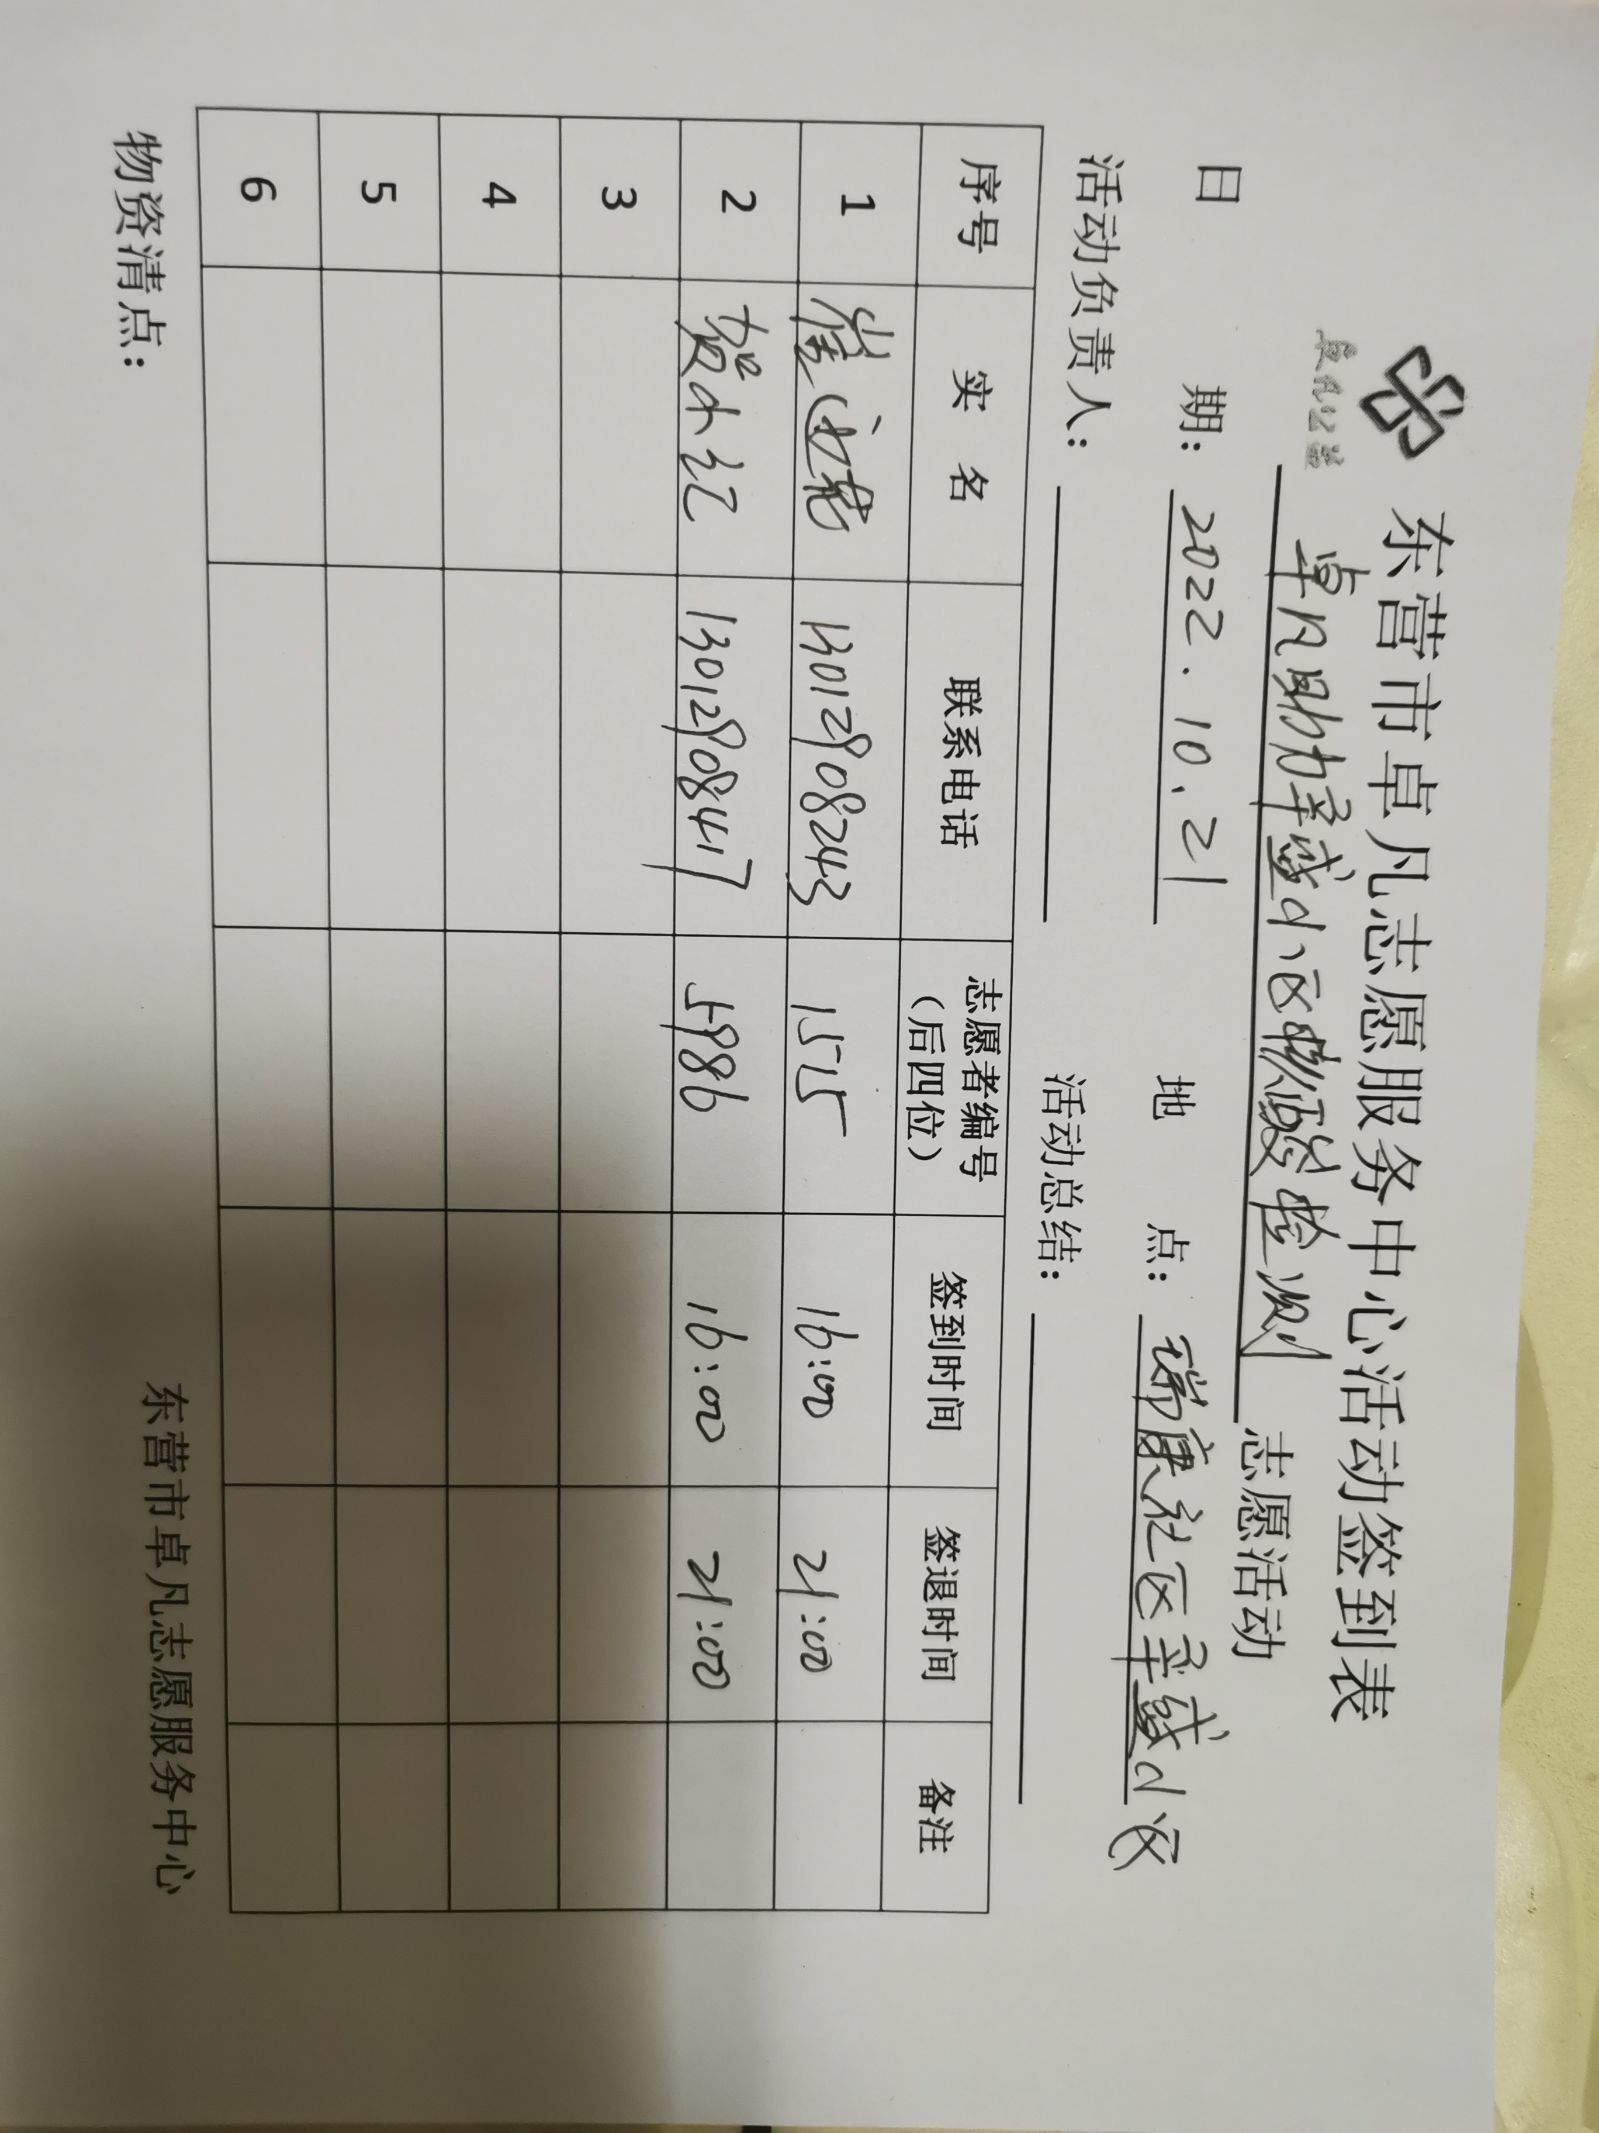 东营市卓凡志愿服务中心活动签到表
卓凡公益
卓凡助力孚盛小区核酸检测 志愿活动
日 期： 2022.10.21 地 点： 瑞康社区孚盛小区
活动负责人： 活动总结：
序号 实 名 联系电话 志愿者编号（后四位） 签到时间 签退时间 备注
1 崔 13012908243 1515 16:00 21:00
2 贺小红 13012908417 5986 16:00 21:00
3
4
5
6
物资清点：
东营市卓凡志愿服务中心